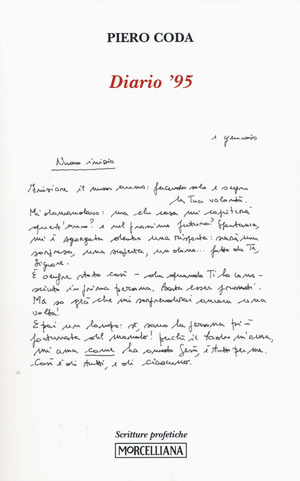 PIERO CODA
Diario '95
1 gennaio
Nuovo inizio
Iniziare il nuovo anno: facendo solo e sempre
la Tua volontà.
Mi domandavo: ma che cosa mi capiterà
quest'anno? e nel prossimo futuro? Spontanea,
mi è sgorgata dentro una risposta: sarà una
sorpresa, una scoperta, un dono... fatto da Te,
Signore.
È sempre stato così - da quando Ti ho
in prima persona. Basta esser pronti.
Ma so già che mi sorprenderai ancora una
volta!
E poi un lampo: sì, sono la persona più
fortunata del mondo! perché il Padre mi ama,
mi ama come ha amato Gesù, è tutto per me.
Così è di tutti, e di ciascuno.
Scritture profetiche
MORCELLIANA